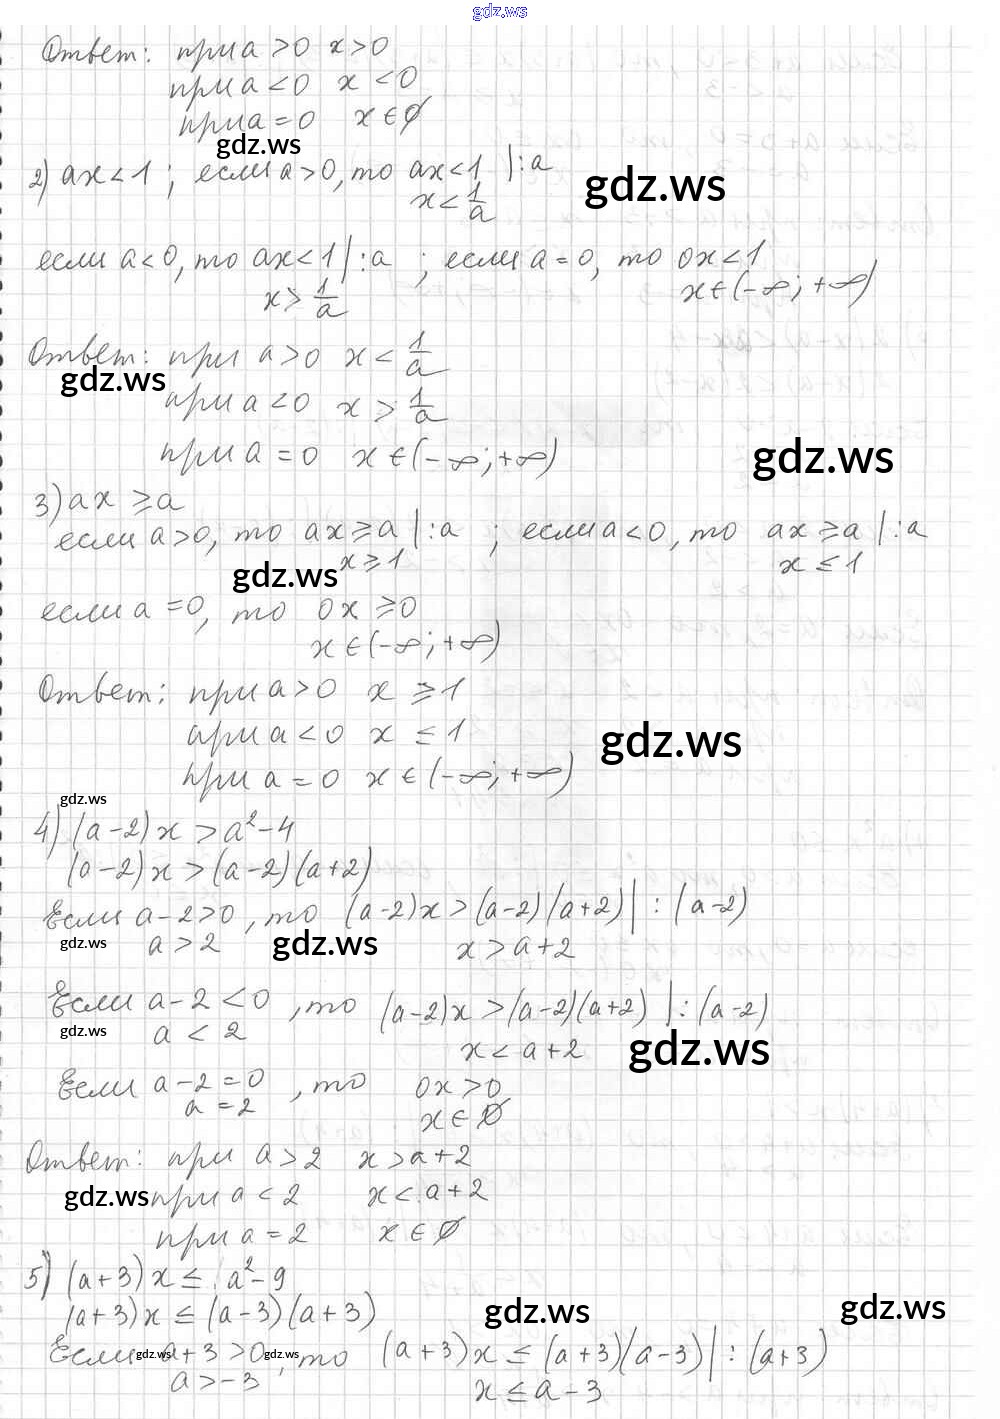 gdz.ws
Ответ: при a > 0 x > 0
при a < 0 x < 0
при a = 0 x ∈ ∅
gdz.ws
2) ax < 1 ; если a > 0, то ax < 1 | : a
gdz.ws
x < 1/a
если a < 0, то ax < 1 | : a ; если a = 0, то 0x < 1
x > 1/a x ∈ (-∞; +∞)
Ответ: при a > 0 x < 1/a
gdz.ws
при a < 0 x > 1/a
при a = 0 x ∈ (-∞; +∞)
gdz.ws
3) ax ≥ a
если a > 0, то ax ≥ a | : a ; если a < 0, то ax ≥ a | : a
gdz.ws x ≥ 1 x ≤ 1
если a = 0, то 0x ≥ 0
x ∈ (-∞; +∞)
Ответ: при a > 0 x ≥ 1
при a < 0 x ≤ 1
gdz.ws
при a = 0 x ∈ (-∞; +∞)
gdz.ws
4) (a-2)x > a² - 4
(a-2)x > (a-2)(a+2)
Если a - 2 > 0, то (a-2)x > (a-2)(a+2) | : (a-2)
gdz.ws a > 2 gdz.ws x > a + 2
Если a - 2 < 0, то (a-2)x > (a-2)(a+2) | : (a-2)
gdz.ws a < 2 x < a + 2 gdz.ws
Если a - 2 = 0, то 0x > 0
a = 2 x ∈ ∅
Ответ: при a > 2 x > a + 2
gdz.ws при a < 2 x < a + 2
при a = 2 x ∈ ∅
5) (a+3)x ≤ a² - 9
(a+3)x ≤ (a-3)(a+3)
gdz.ws gdz.ws
Если a + 3 > 0, то (a+3)x ≤ (a+3)(a-3) | : (a+3)
gdz.ws gdz.ws
a > -3 x ≤ a - 3